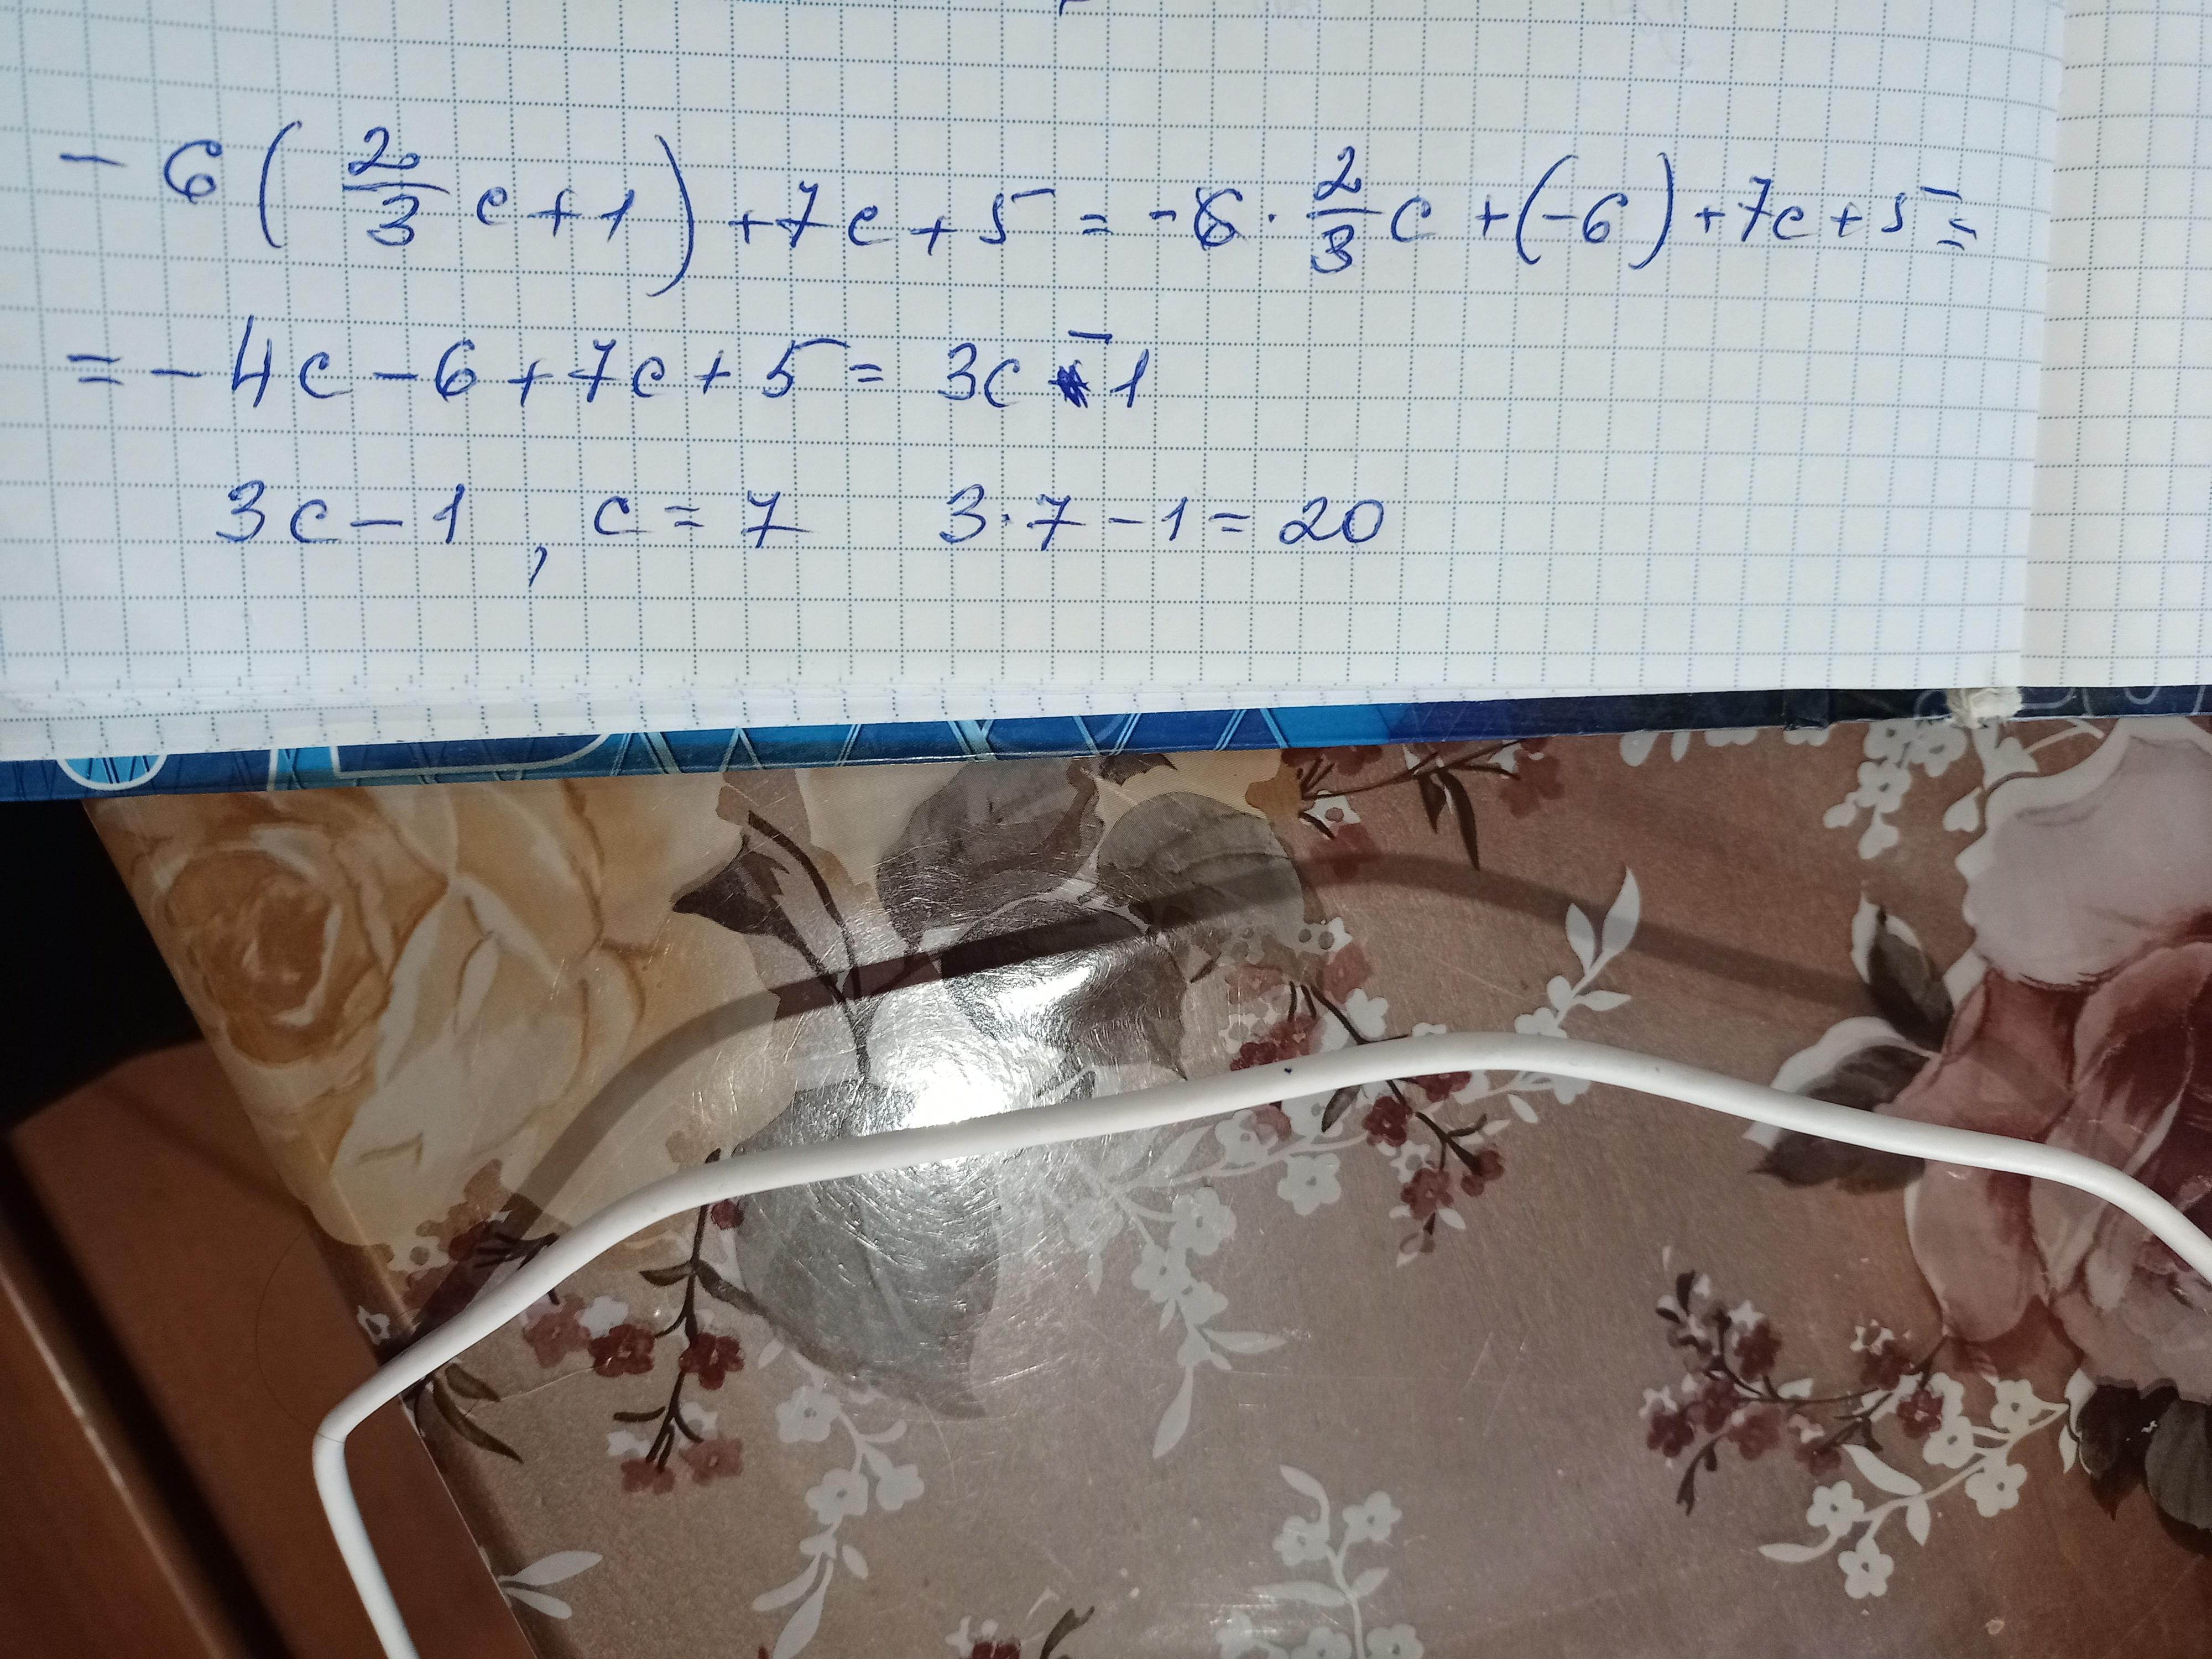 - 6 ( 2/3 c + 1 ) + 7c + 5 = - 6 · 2/3 c + (-6) + 7c + 5 =
= - 4c - 6 + 7c + 5 = 3c - 1
3c - 1 , c = 7 3 · 7 - 1 = 20